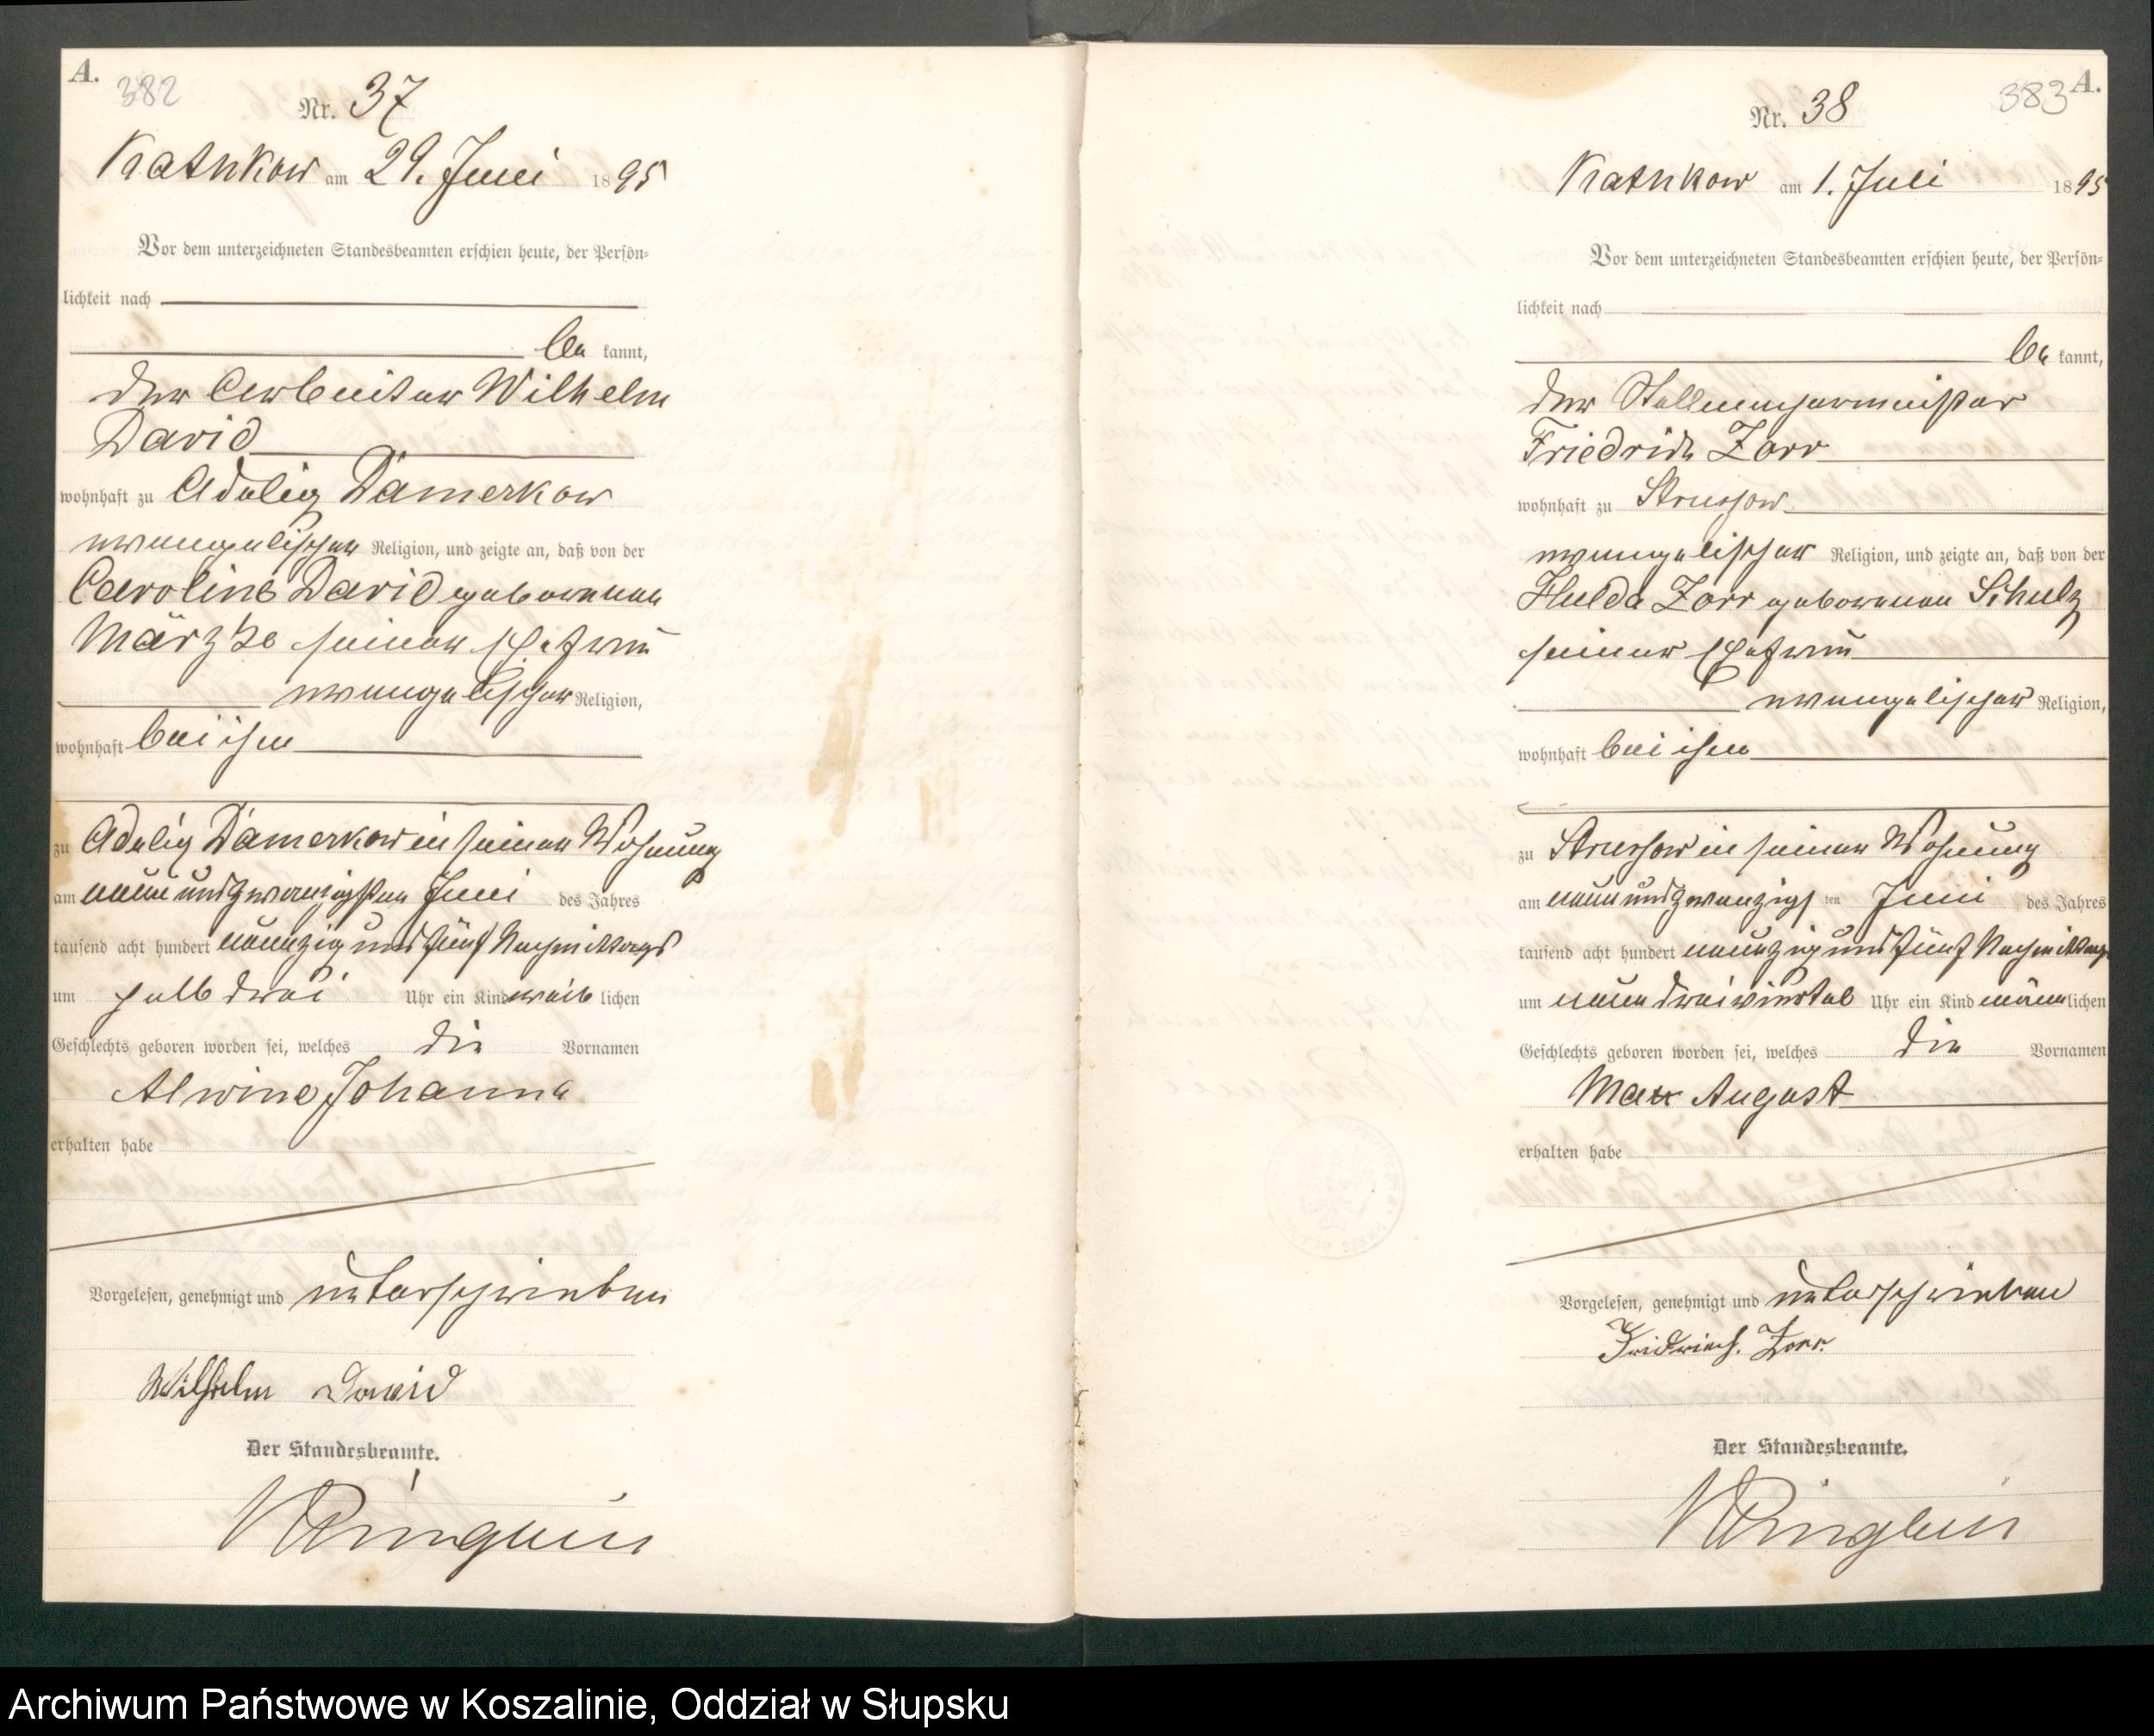 A.
382
Nr. 37
Rathkow am 29. Juni 1895
Vor dem unterzeichneten Standesbeamten erschien heute, der Persön-
lichkeit nach
be kannt,
der Arbeiter Wilhelm
David
wohnhaft zu Adelig Damerkow
evangelischer Religion, und zeigte an, daß von der
Caroline David geborenen
Märzke seiner Ehefrau
evangelischer Religion,
wohnhaft bei ihm
zu Adelig Damerkow in seiner Wohnung
am neunundzwanzigsten Juni des Jahres
tausend acht hundert neunzig und fünf Nachmittags
um halb drei Uhr ein Kind weib lichen
Geschlechts geboren worden sei, welches die Vornamen
Alwine Johanna
erhalten habe
Vorgelesen, genehmigt und unterschrieben
Wilhelm David
Der Standesbeamte.
383 A.
Nr. 38
Rathkow am 1. Juli 1895
Vor dem unterzeichneten Standesbeamten erschien heute, der Persön-
lichkeit nach
be kannt,
der Stellmachermeister
Friedrich Zorr
wohnhaft zu Strussow
evangelischer Religion, und zeigte an, daß von der
Hulda Zorr geborenen Schulz
seiner Ehefrau
evangelischer Religion,
wohnhaft bei ihm
zu Strussow in seiner Wohnung
am neunundzwanzigs ten Juni des Jahres
tausend acht hundert neunzig und fünf Nachmittags
um neun dreiviertel Uhr ein Kind männ lichen
Geschlechts geboren worden sei, welches die Vornamen
Max August
erhalten habe
Vorgelesen, genehmigt und unterschrieben
Friedrich. Zorr.
Der Standesbeamte.
Archiwum Państwowe w Koszalinie, Oddział w Słupsku